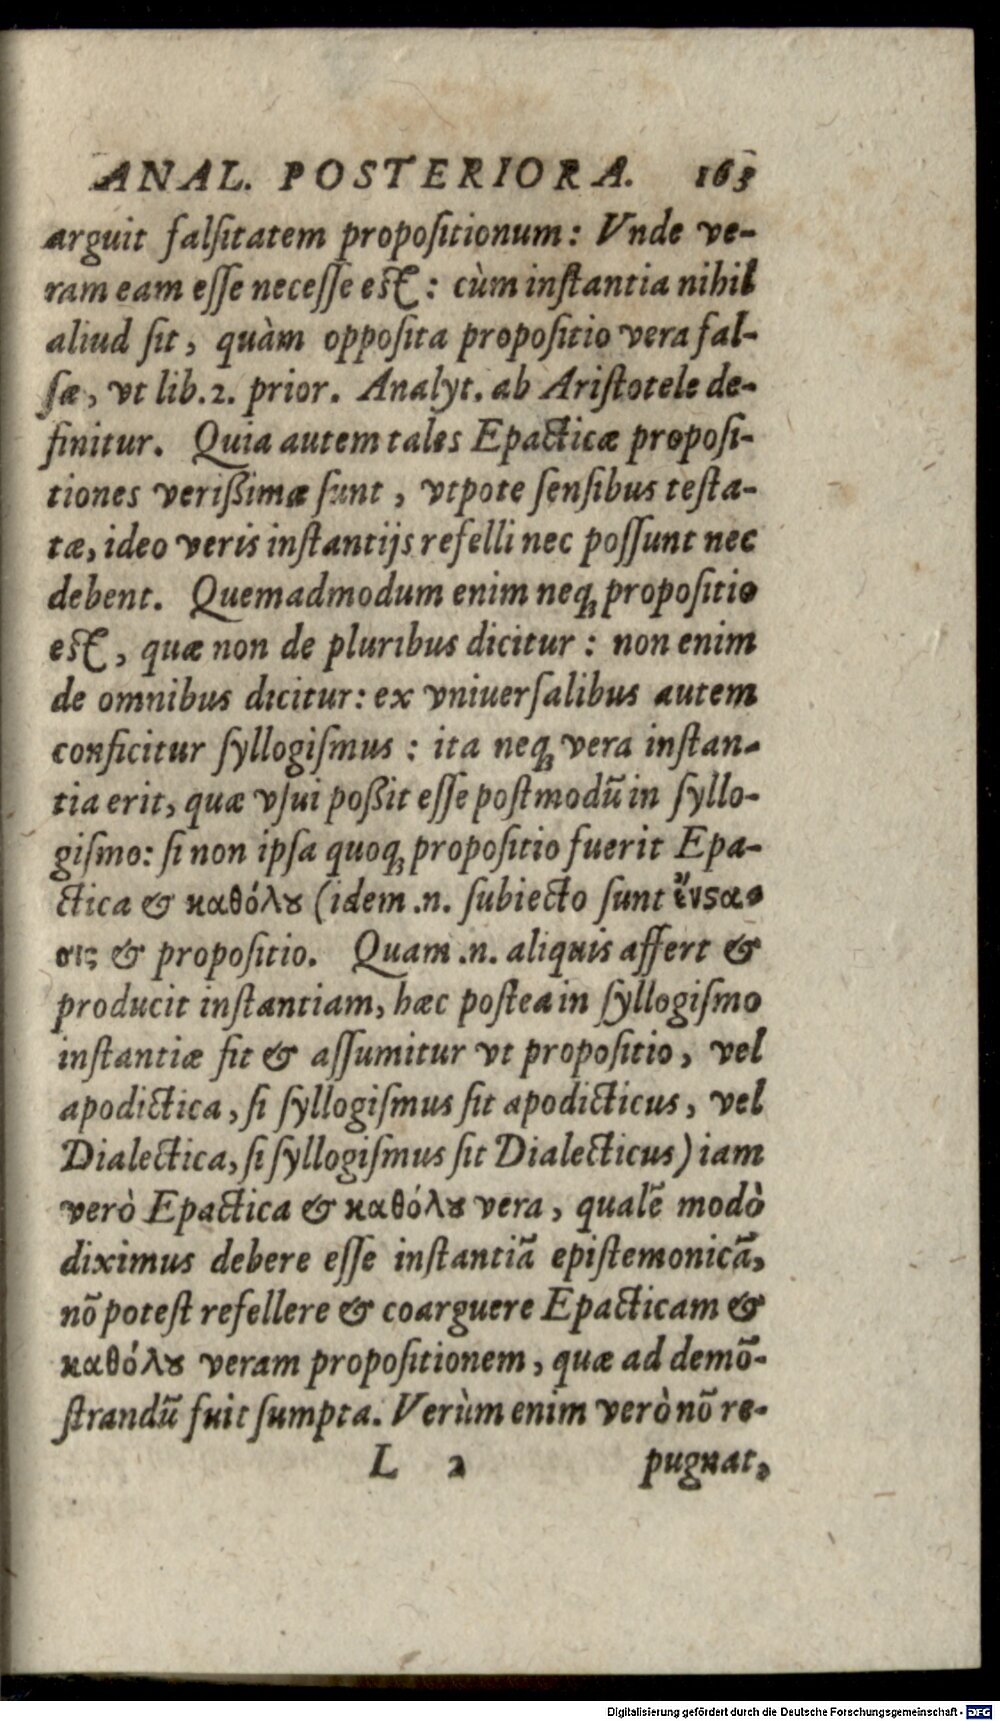 ANAL. POSTERIORA. 163
arguit falſitatem propoſitionum: Vnde ve-
ram eam eſſe neceſſe eſt: cùm inſtantia nihil
aliud ſit, quàm oppoſita propoſitio vera fal-
ſæ, vt lib. 2. prior. Analyt. ab Ariſtotele de-
finitur. Quia autem tales Epacticæ propoſi-
tiones verißimæ ſunt, vtpote ſenſibus teſta-
tæ, ideo veris inſtantijs refelli nec poſſunt nec
debent. Quemadmodum enim neq; propoſitio
eſt, quæ non de pluribus dicitur: non enim
de omnibus dicitur: ex vniuerſalibus autem
conficitur ſyllogiſmus: ita neq; vera inſtan-
tia erit, quæ vſui poßit eſſe poſtmodũ in ſyllo-
giſmo: ſi non ipſa quoq; propoſitio fuerit Epa-
ctica & καθόλȣ (idem .n. ſubiecto ſunt ἔνϛα-
σις & propoſitio. Quam .n. aliquis affert &
producit inſtantiam, hæc poſtea in ſyllogiſmo
inſtantiæ fit & aſſumitur vt propoſitio, vel
apodictica, ſi ſyllogiſmus ſit apodicticus, vel
Dialectica, ſi ſyllogiſmus ſit Dialecticus) iam
verò Epactica & καθόλȣ vera, qualẽ modò
diximus debere eſſe inſtantiã epiſtemonicã,
nõ poteſt refellere & coarguere Epacticam &
καθόλȣ veram propoſitionem, quæ ad demõ-
ſtrandũ fuit ſumpta. Verùm enim verò nõ re-
L 2 pugnat,
Digitalisierung gefördert durch die Deutsche Forschungsgemeinschaft - DFG